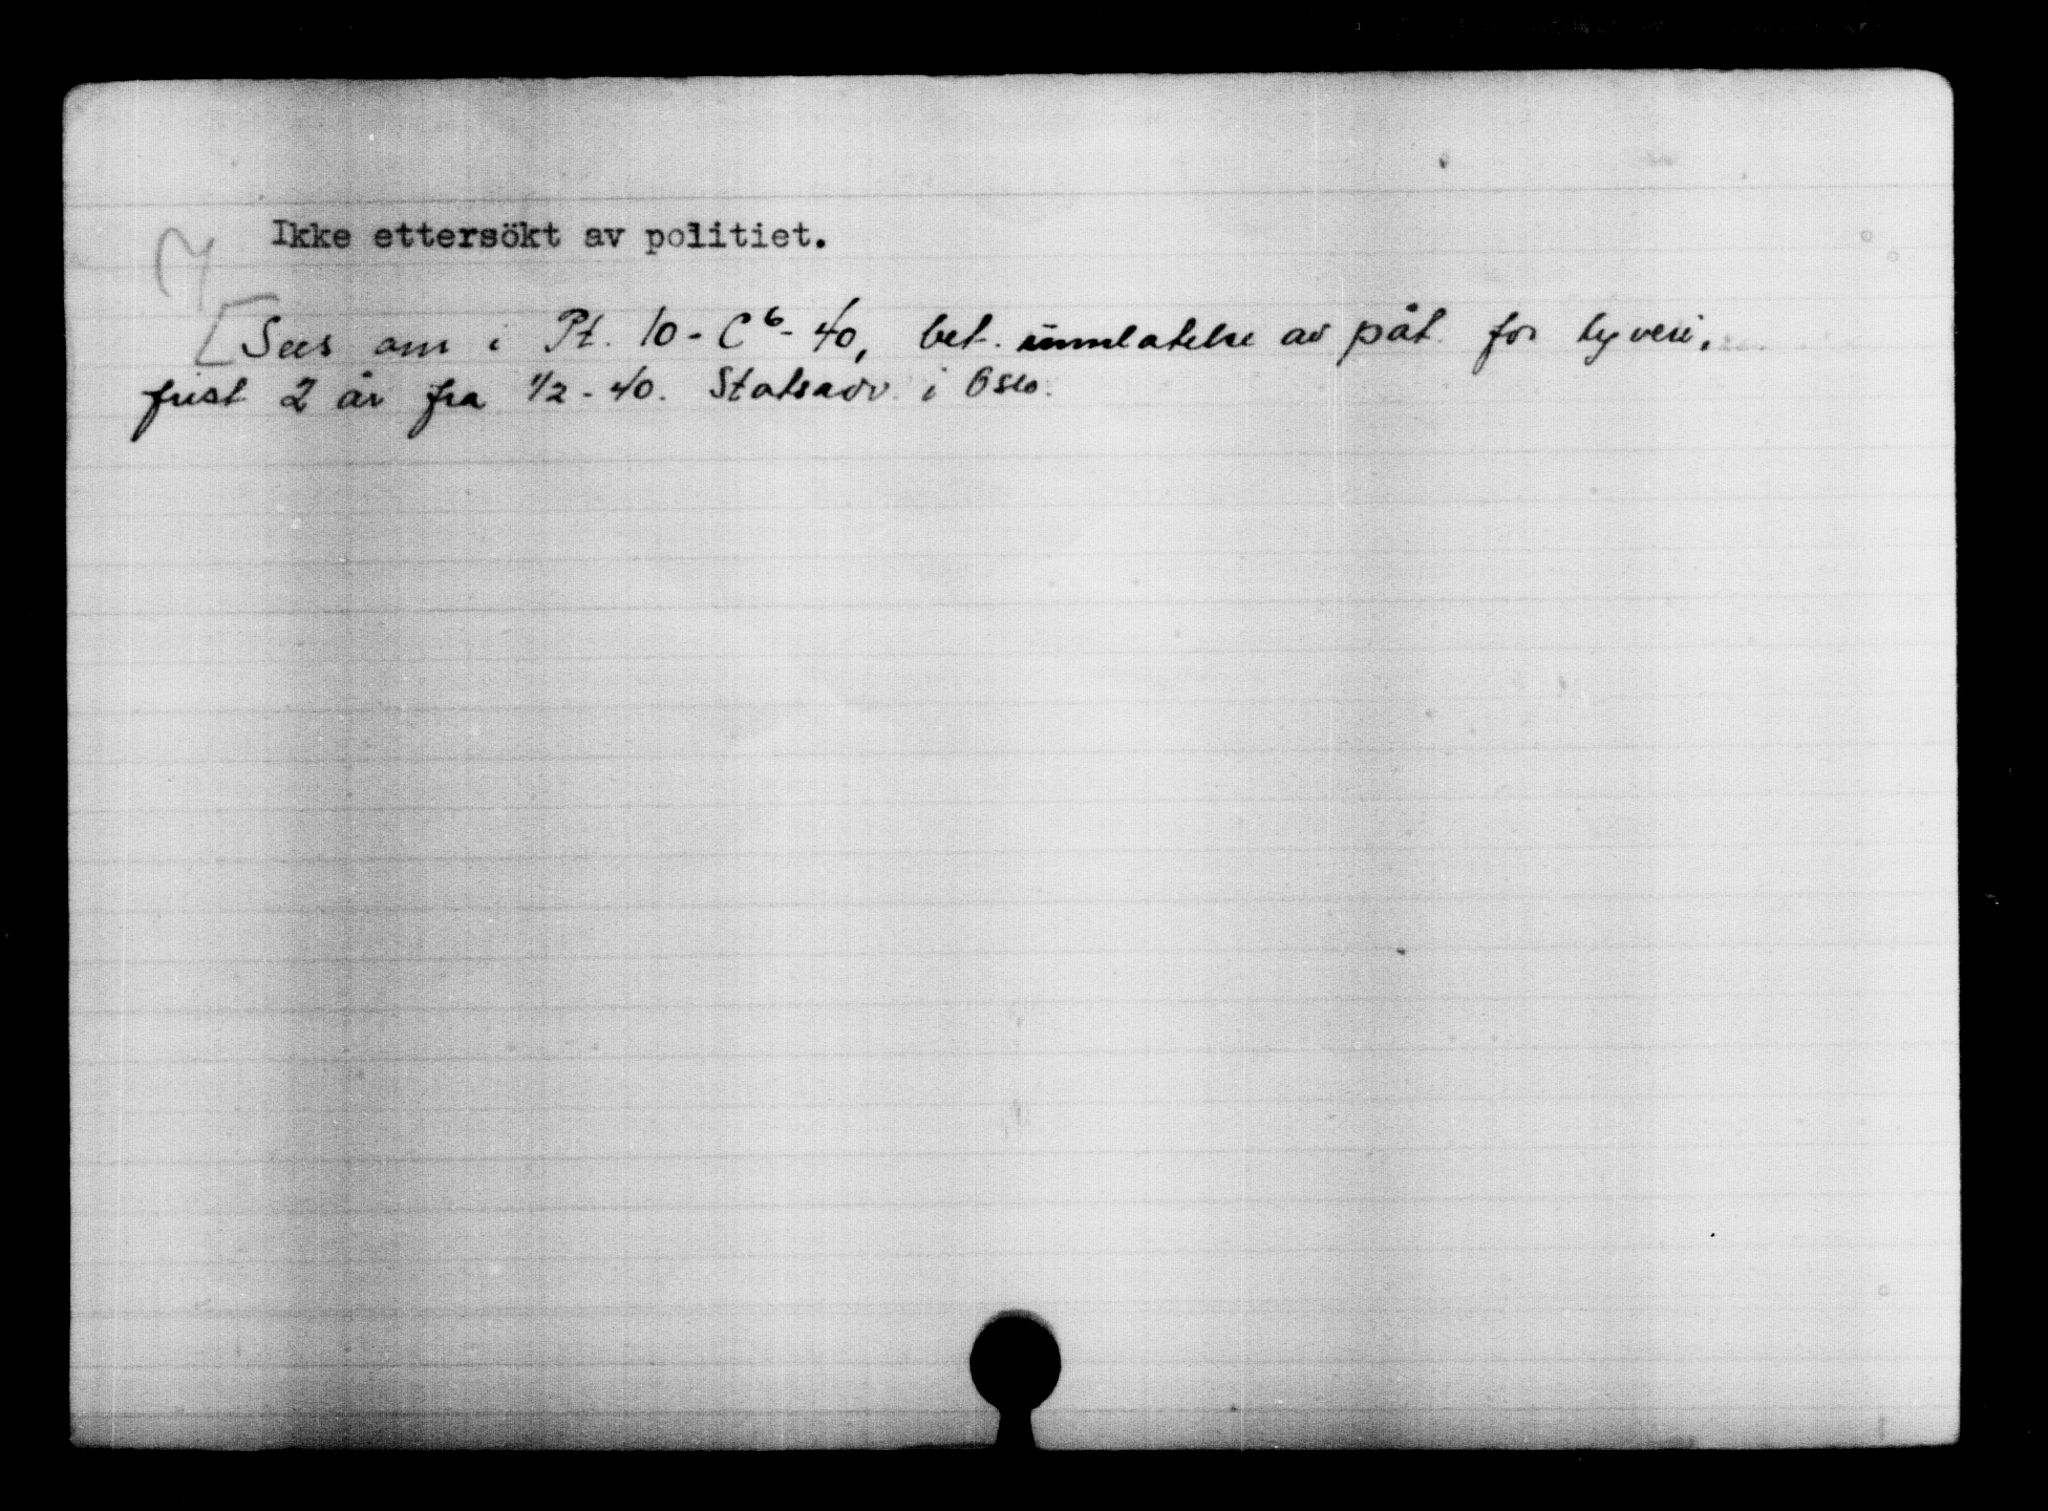 Ikke ettersökt av politiet.
[Sees om i Pt. 10-C6-40, bet. unnlatelse av påt. for tyveri,
frist 2 år fra 1/2-40. Statsadv. i Oslo.